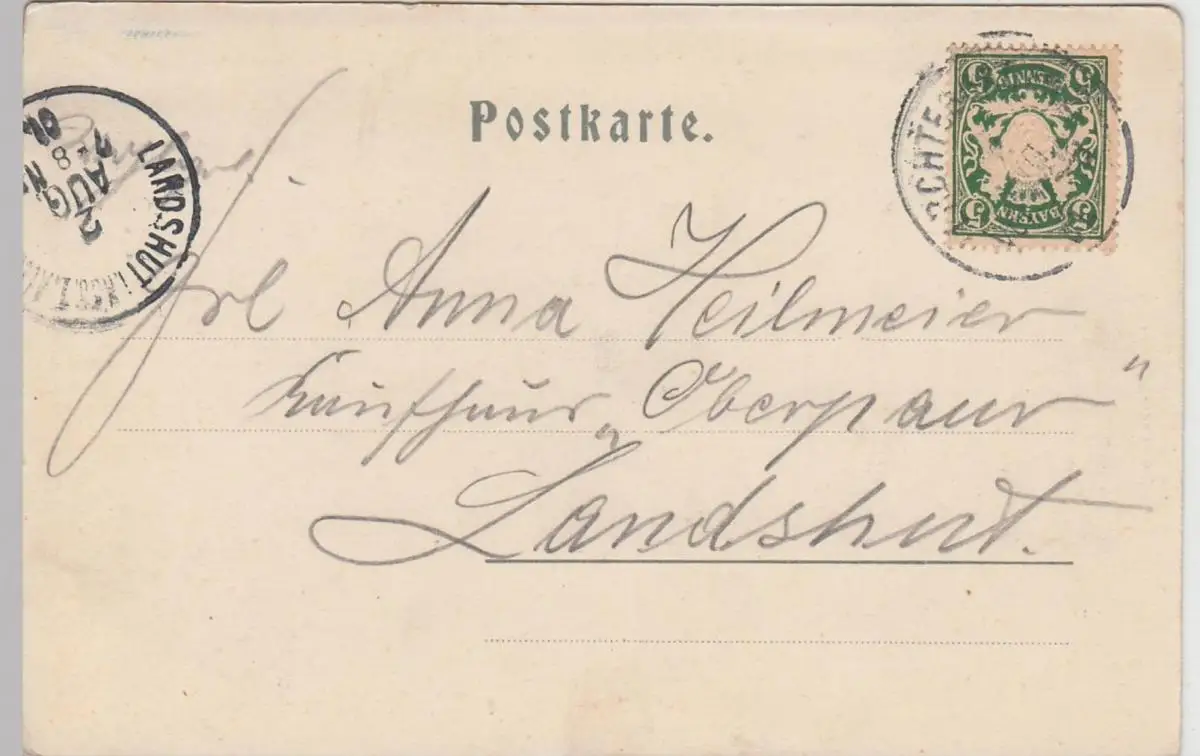 Postkarte.
LANDSHUT
2 AUG
N
8
5 5
BAYERN
5 5
Frl Anna Heilmeier
Kaufhaus „Oberpaur"
Landshut.